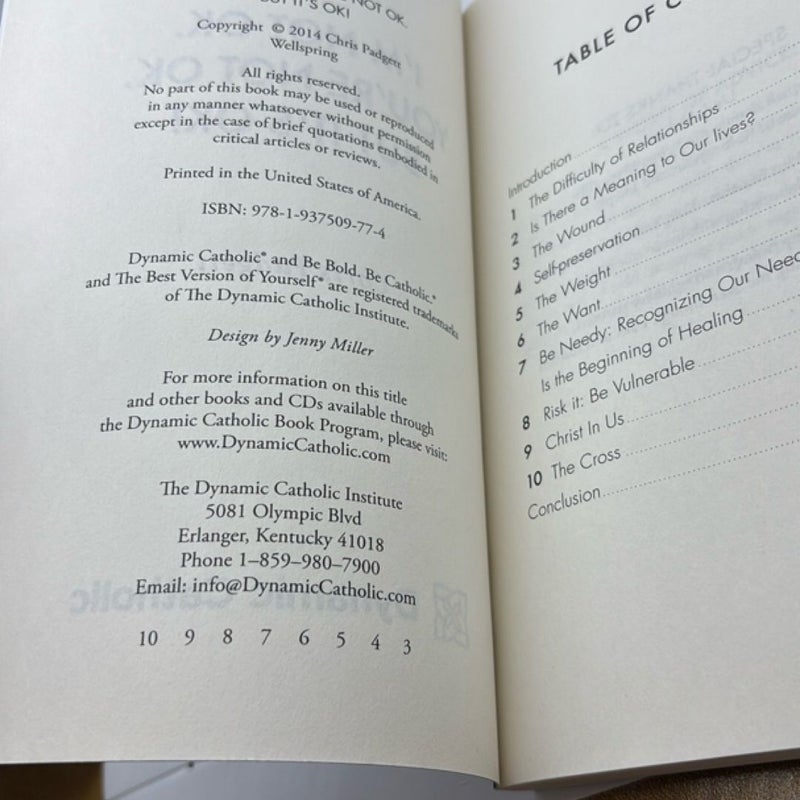 NOT OK.
IT'S OK!
Copyright © 2014 Chris Padgett
Wellspring
All rights reserved.
No part of this book may be used or reproduced
in any manner whatsoever without permission
except in the case of brief quotations embodied in
critical articles or reviews.
Printed in the United States of America.
ISBN: 978-1-937509-77-4
Dynamic Catholic® and Be Bold. Be Catholic.®
and The Best Version of Yourself® are registered trademarks
of The Dynamic Catholic Institute.
Design by Jenny Miller
For more information on this title
and other books and CDs available through
the Dynamic Catholic Book Program, please visit:
www.DynamicCatholic.com
The Dynamic Catholic Institute
5081 Olympic Blvd
Erlanger, Kentucky 41018
Phone 1–859–980–7900
Email: info@DynamicCatholic.com
10 9 8 7 6 5 4 3
TABLE OF C
Introduction
1 The Difficulty of Relationships
2 Is There a Meaning to Our lives?
3 The Wound
4 Self-preservation
5 The Weight
6 The Want
7 Be Needy: Recognizing Our Need
Is the Beginning of Healing
8 Risk it: Be Vulnerable
9 Christ In Us
10 The Cross
Conclusion